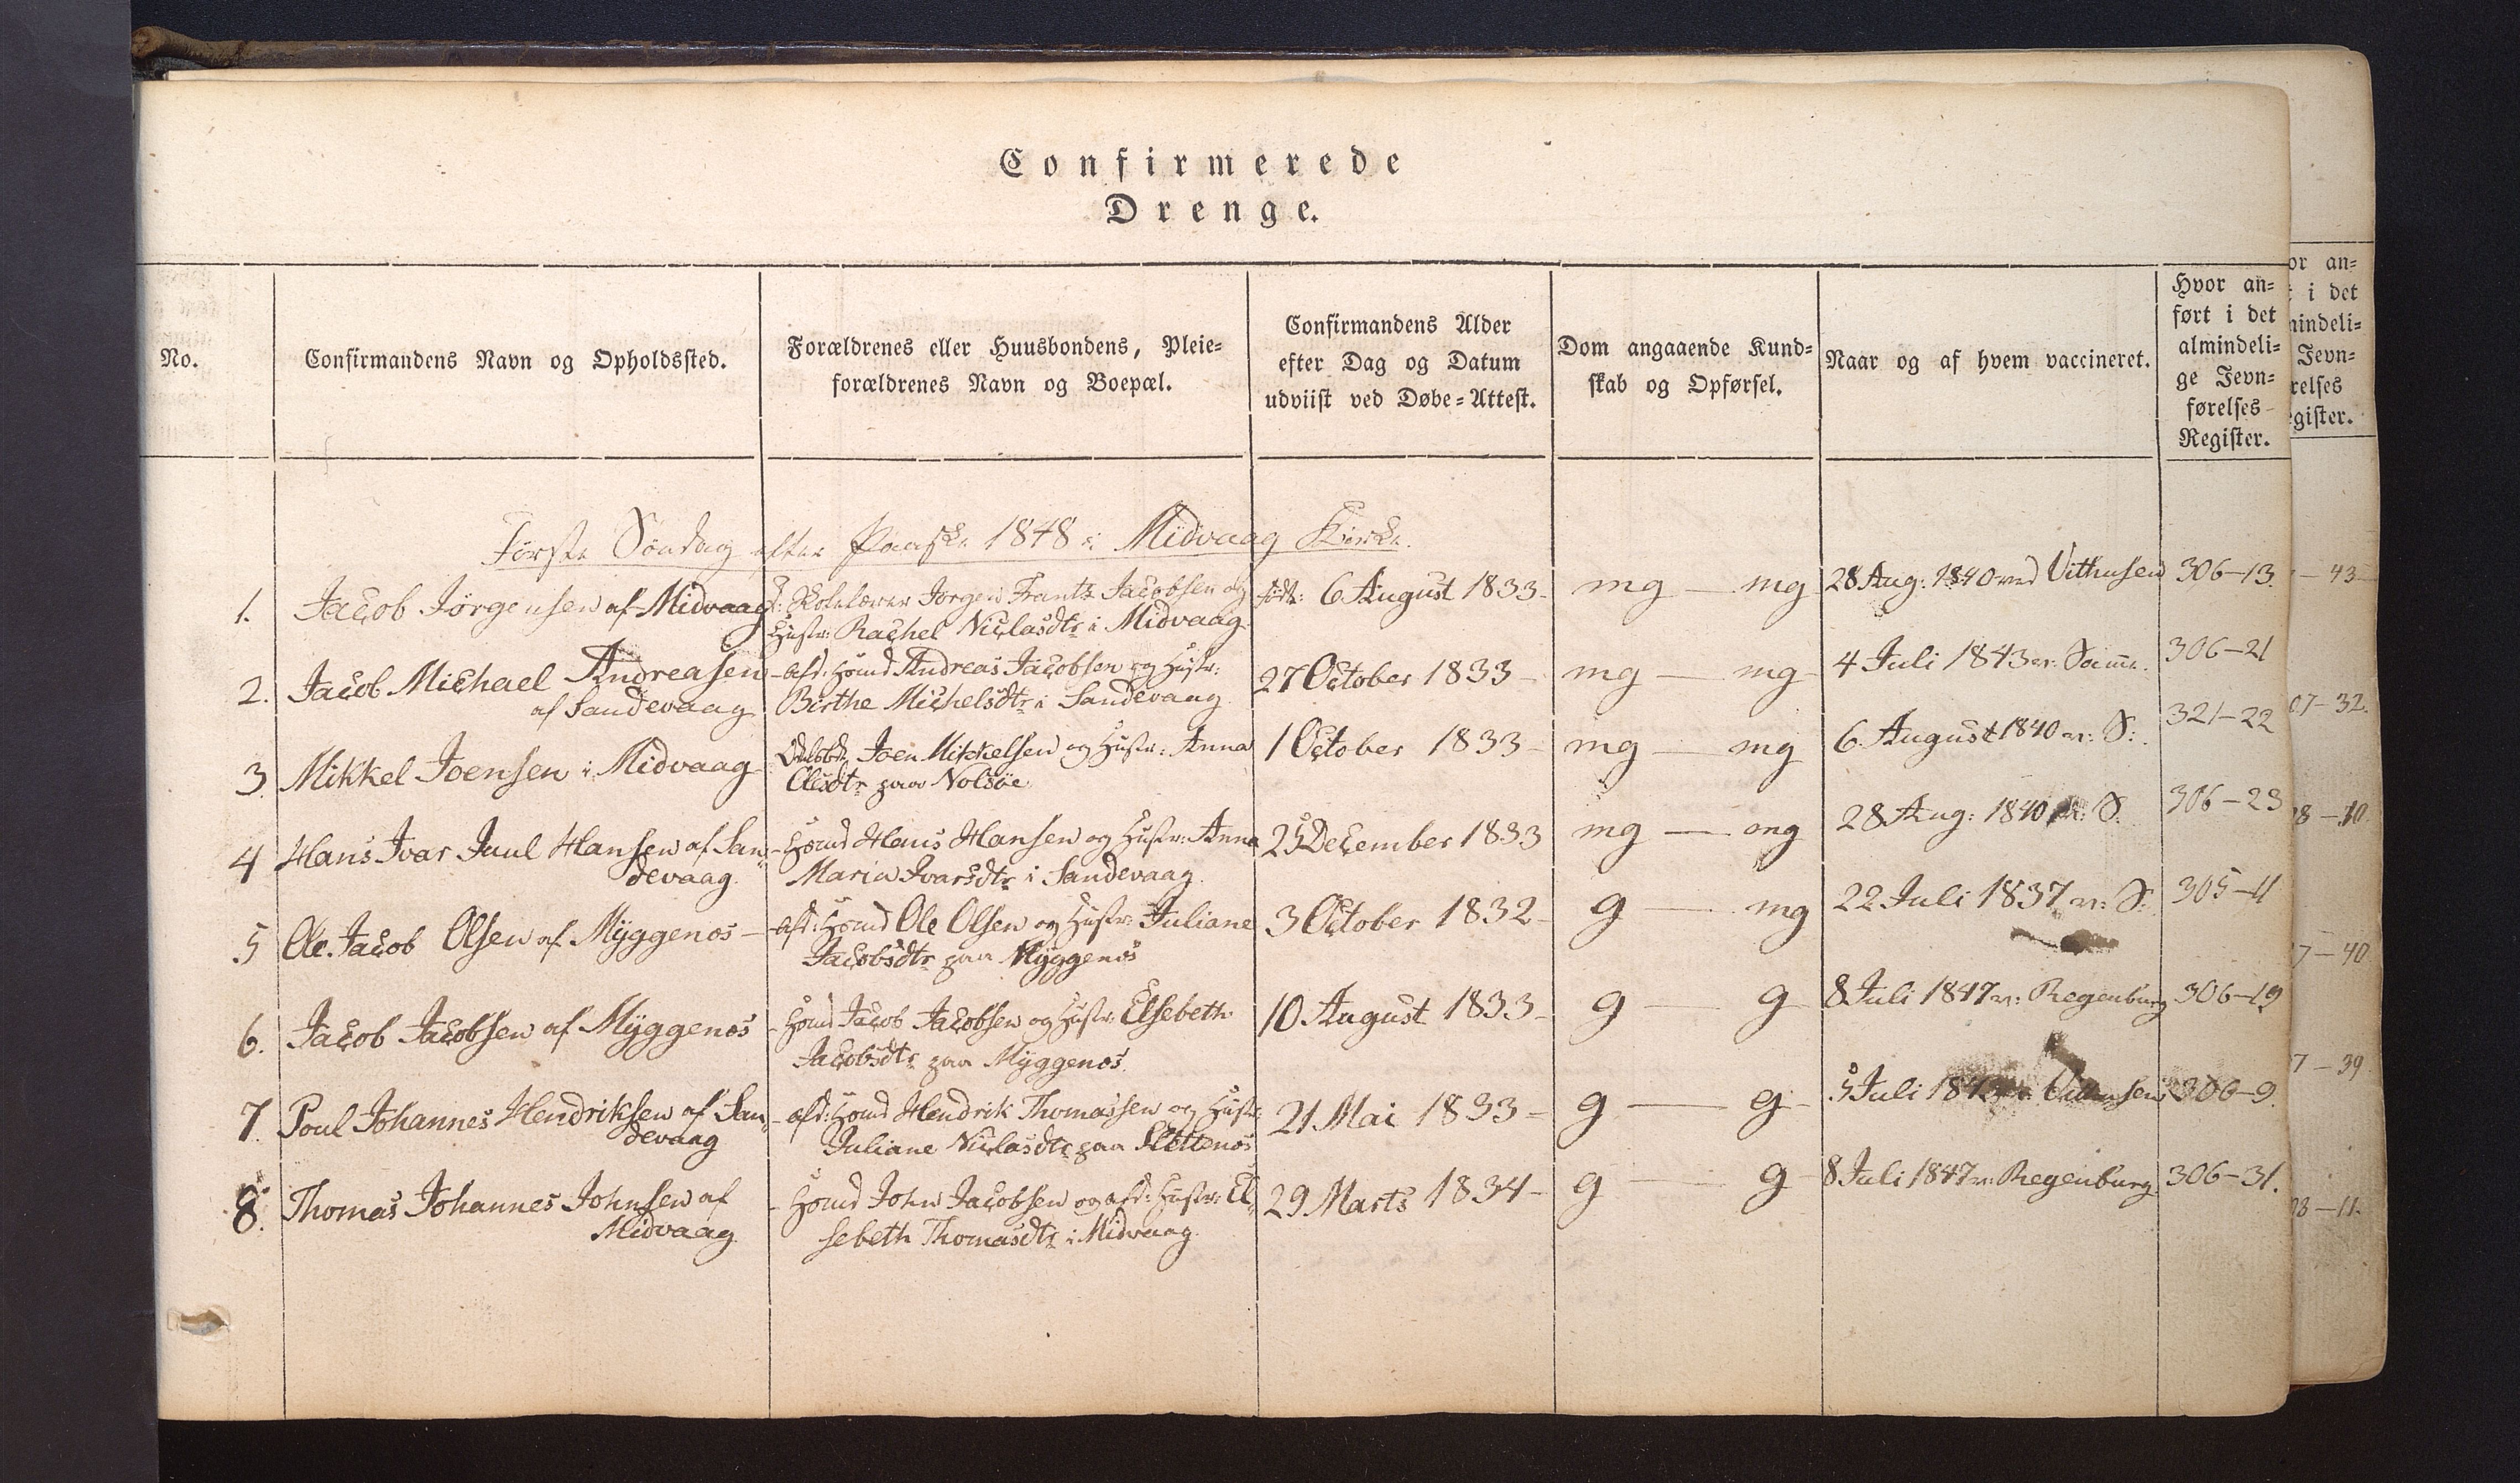 Confirmerede
Drenge.
No.
Confirmandens Navn og Opholdssted.
Forældrenes eller Huusbondens, Pleie=
forældrenes Navn og Boepæl.
Confirmandens Alder
efter Dag og Datum
udviist ved Døbe=Attest.
Dom angaaende Kund=
skab og Opførsel.
Naar og af hvem vaccineret.
Hvor an=
ført i det
almindeli=
ge Jevn=
førelses
Register.
Første Søndag efter Paaske 1848 i Midvaag Kirke.
1. Jacob Jørgensen af Midvaag
Skolelærer Jørgen Frantz Jacobsen og
Hustr: Rachel Niclasdtr i Midvaag
født: 6 August 1833 mg — mg 28 Aug: 1840 ved Vithusen 306–13.
2. Jacob Michael Andreasen
af Sandevaag
afd: Hσmd Andreas Jacobsen og Hustr:
Birthe Michelsdtr i Sandevaag
27 October 1833 mg — mg 4 Juli 1843 v: Samme. 306–21
3. Mikkel Joensen i Midvaag
Joen Mikkelsen og Hustr: Anna
Olesdtr paa Nolsøe
1 October 1833 mg — mg 6 August 1840 v: S: 321–22
4 Hans Ivar Juul Hansen af San=
devaag.
Hans Hansen og Hustr: Anna
Maria Ivarsdtr i Sandevaag.
25 December 1833 mg — mg 28 Aug: 1840 v: S. 306–23
5 Ole Jacob Olsen af Myggenæs
afd: Ole Olsen og Hustr: Juliane
Jacobsdtr paa Myggenæs
3 October 1832 g — mg 22 Juli 1837 v: S: 305–11
6. Jacob Jacobsen af Myggenæs
Jacob Jacobsen og Hustr: Elsebeth
Jacobsdtr paa Myggenæs.
10 August 1833 g — g 8 Juli 1847 v: Regenburg 306–19
7. Poul Johannes Hendriksen af San=
devaag
afd: Hendrik Thomassen og Hustr:
Juliane Niclasdtr paa Slættenæs
21 Mai 1833 g — g 5 Juli Vithusen 306–9.
8. Thomas Johannes Johnsen af
Midvaag
John Jacobsen og afd: Hustr: El=
sebeth Thomasdtr i Midvaag.
29 Marts 1834 g — g 8 Juli 1847 v: Regenburg 306–31.
or an=
i det
mindeli=
Jevn=
relses
egister.
— 43
07–32.
8–10.
7–40
7–39
–11.